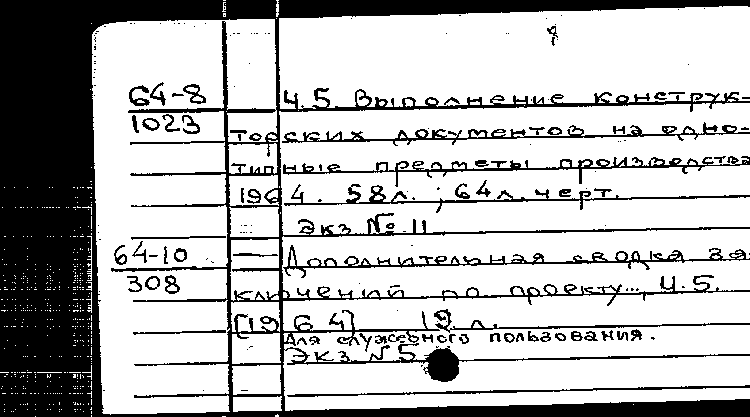 8
64-8 Ч.5. Выполнение конструк-
1023 торских документов на одно-
типные предметы производства
1964. 58л.; 64л. черт.
Экз № 11
64-10 — Дополнительная сводка за-
308 ключений по проекту..., Ч.5.
[1964] 19 л.
Для служебного пользования.
Экз N 5